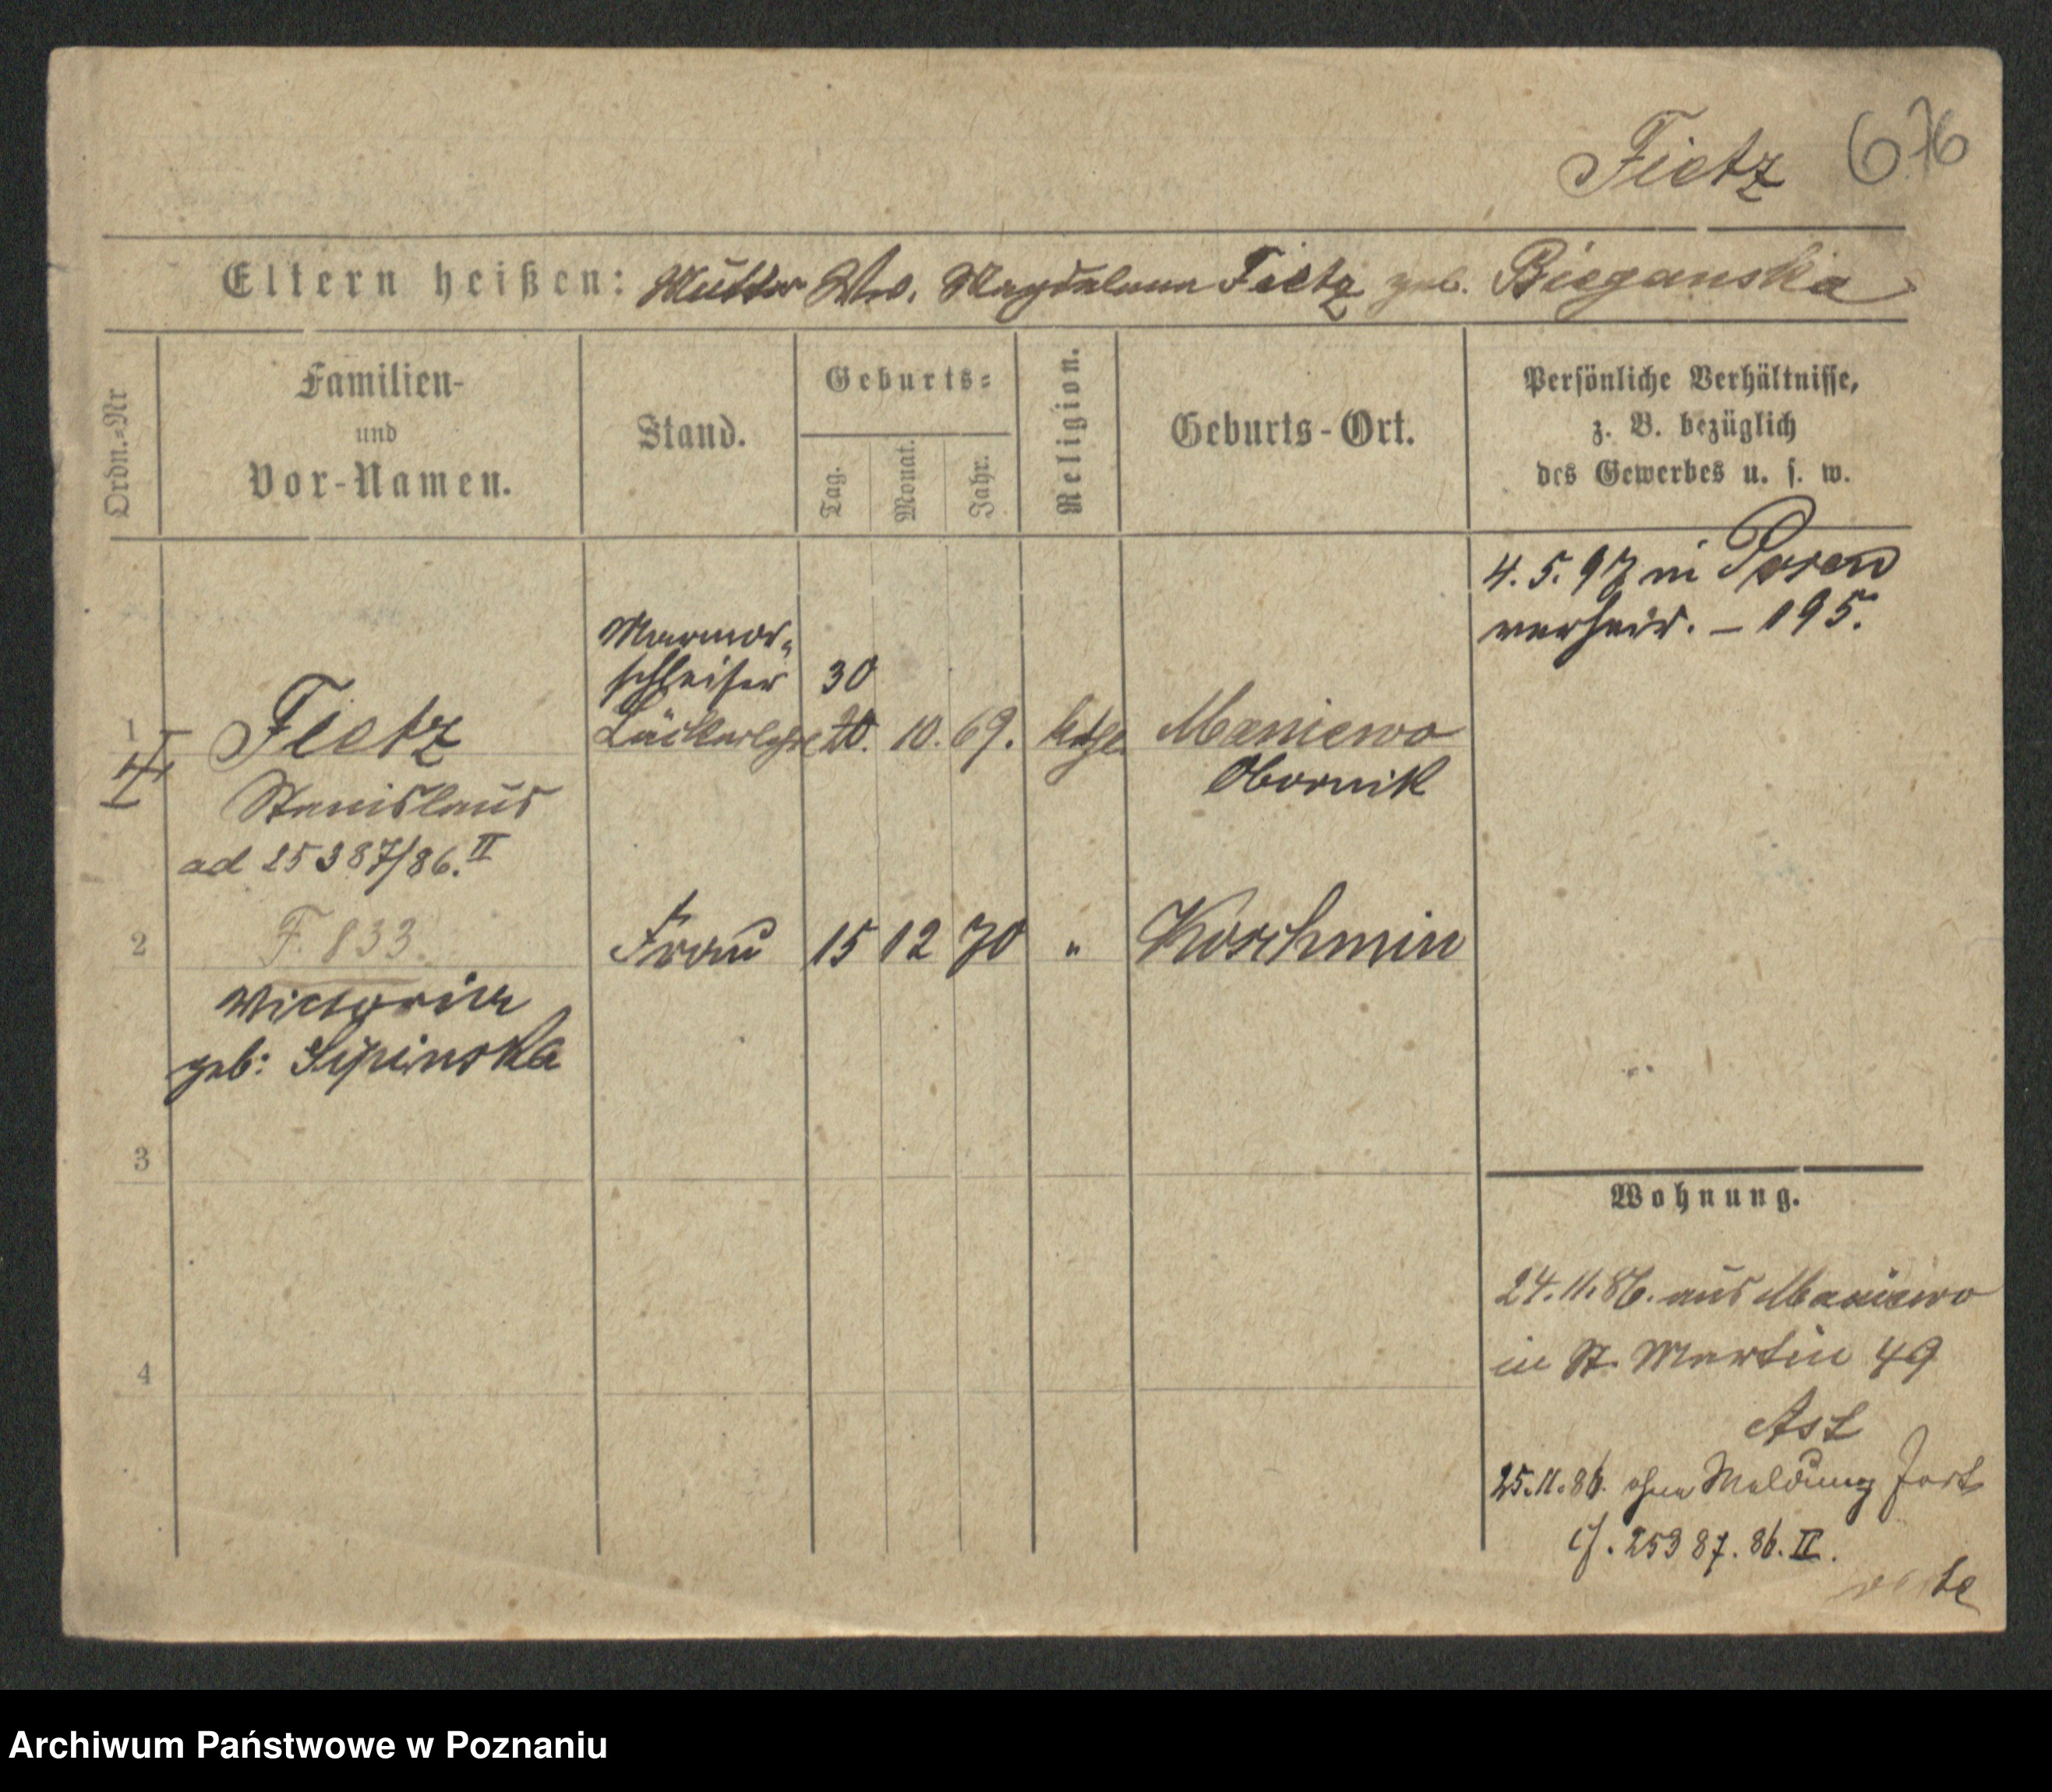 Fietz 676
Eltern heißen: Mutter Ww. Magdalena Fietz geb. Bieganska
Ordn.-Nr
Familien-
und
Vor-Namen.
Stand.
Geburts-
Tag.
Monat.
Jahr.
Religion.
Geburts-Ort.
Persönliche Verhältnisse,
z. B. bezüglich
des Gewerbes u. s. w.
4. 5. 97 in Posen
verheir. – 195.
Marmor-
schleifer 30
1 Fietz 20. 10. 69. kath. Maniewo
Stanislaus Obornik
ad 25387/86. II
2 F. 833. Frau 15 12 70 " Koschmin
Victoria
geb: Sipinska
3
Wohnung.
24. 11. 86. aus Maniewo
in St. Martin 49
4
Ast
25. 11. 86. ohne Meldung fort
cf. 25387. 86. II.
Archiwum Państwowe w Poznaniu